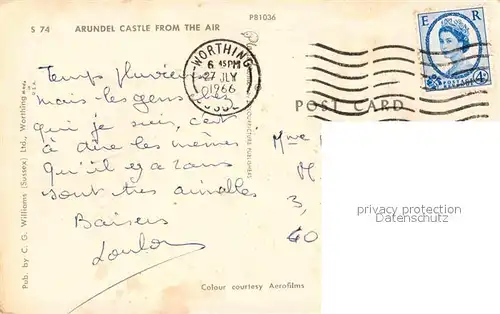 S 74 ARUNDEL CASTLE FROM THE AIR P81036
WORTHING
6 45PM
27 JLY
1966
SUSSEX
E R
POSTAGE
4D
POST CARD
Temps pluvieux
mais les gens chez
qui je suis, c'est
à dire les mêmes
qu'il y a 2 ans
sont très aimables
Baisers
Loulou
Mme
M
3,
60
privacy protection
Datenschutz
Colour courtesy Aerofilms
Pub. by C. G. Williams (Sussex) Ltd., Worthing